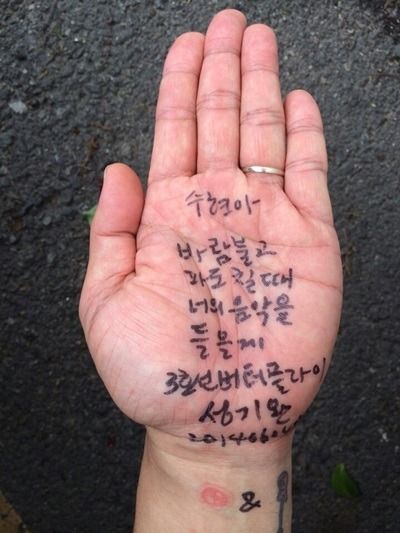 수현아
바람불고
파도칠때
너의음악을
들을게
3호선버터플라이
성기완
20140602
&